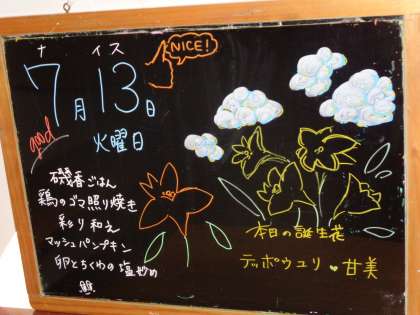 ナ イス
NICE!
7月13日
good
火曜日
磯香ごはん
鶏のゴマ照り焼き
彩り和え
マッシュパンプキン
卵とちくわの塩炒め
本日の誕生花
テッポウユリ♥甘美